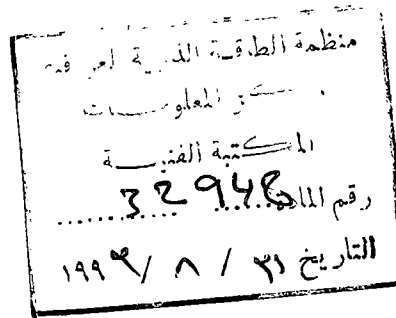 منظمة الطاقة الذرية
المعلومات
المكتبة الفنية
رقم المادة 32948
التاريخ ٣١ / ٨ / ١٩٩